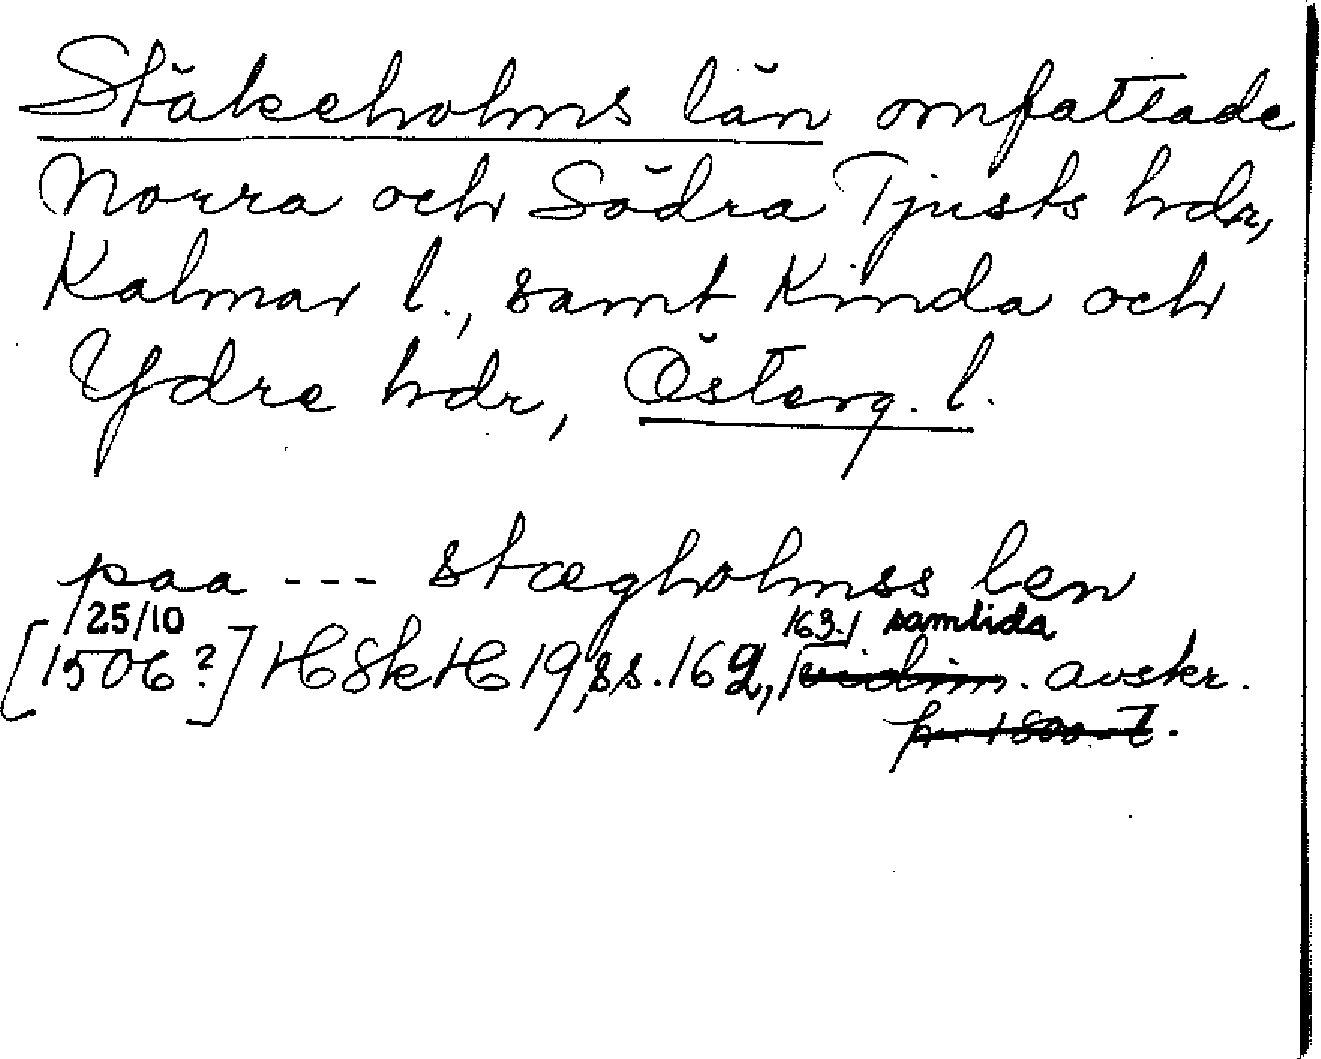 Stäkeholms län omfattade
Norra och Södra Tjusts hdr,
Kalmar l., samt Kinda och
Ydre hdr, Österg. l.
paa --- stægholmss len
25/10 163. samtida
[1506?] HSkH 19, ss. 162, vidim. avskr.
fr. 1800-t.